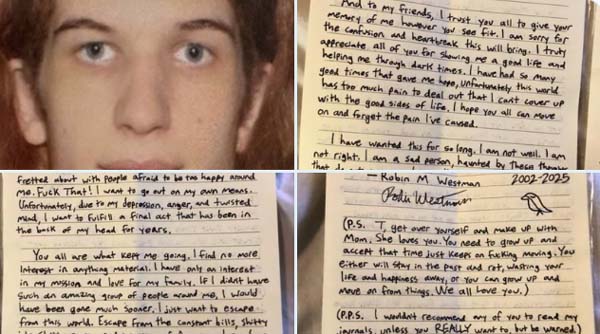 And to my friends, I trust you all to give your
memory of me however you see fit. I am sorry for
the confusion and heartbreak this will bring. I truly
appreciate all of you for showing me a good life and
helping me through dark times. I have had so many
good times that gave me hope, unfortunately this world
has too much pain to deal out that I cant cover up
with the good sides of life. I hope you all can move
on and forget the pain I've caused.
I have wanted this for so long. I am not well. I am
not right. I am a sad person, haunted by these
fretted about with people afraid to be too happy around
me. Fuck That! I want to go out on my own means.
Unfortunately, due to my depression, anger, and twisted
mind, I want to fulfill a final act that has been in
the back of my head for years.
You all are what kept me going. I find no more
interest in anything material. I have only on interest
in my mission and love for my family. If I didnt have
such an amazing group of people around me, I would
have been gone much sooner. I just want to escape
from this world. Escape from the constant bills, shitty
— Robin M. Westman 2002-2025
(P.S. T, get over yourself and make up with
Mom. She loves you. You need to grow up and
accept that time just keeps on fucking moving. You
either will stay in the past and rot, wasting your
life and happiness away, or you can grow up and
move on from things. We all love you.)
(P.P.S. I wouldn't recommend any of you to read my
journals, unless you REALLY want to, but be warned.)